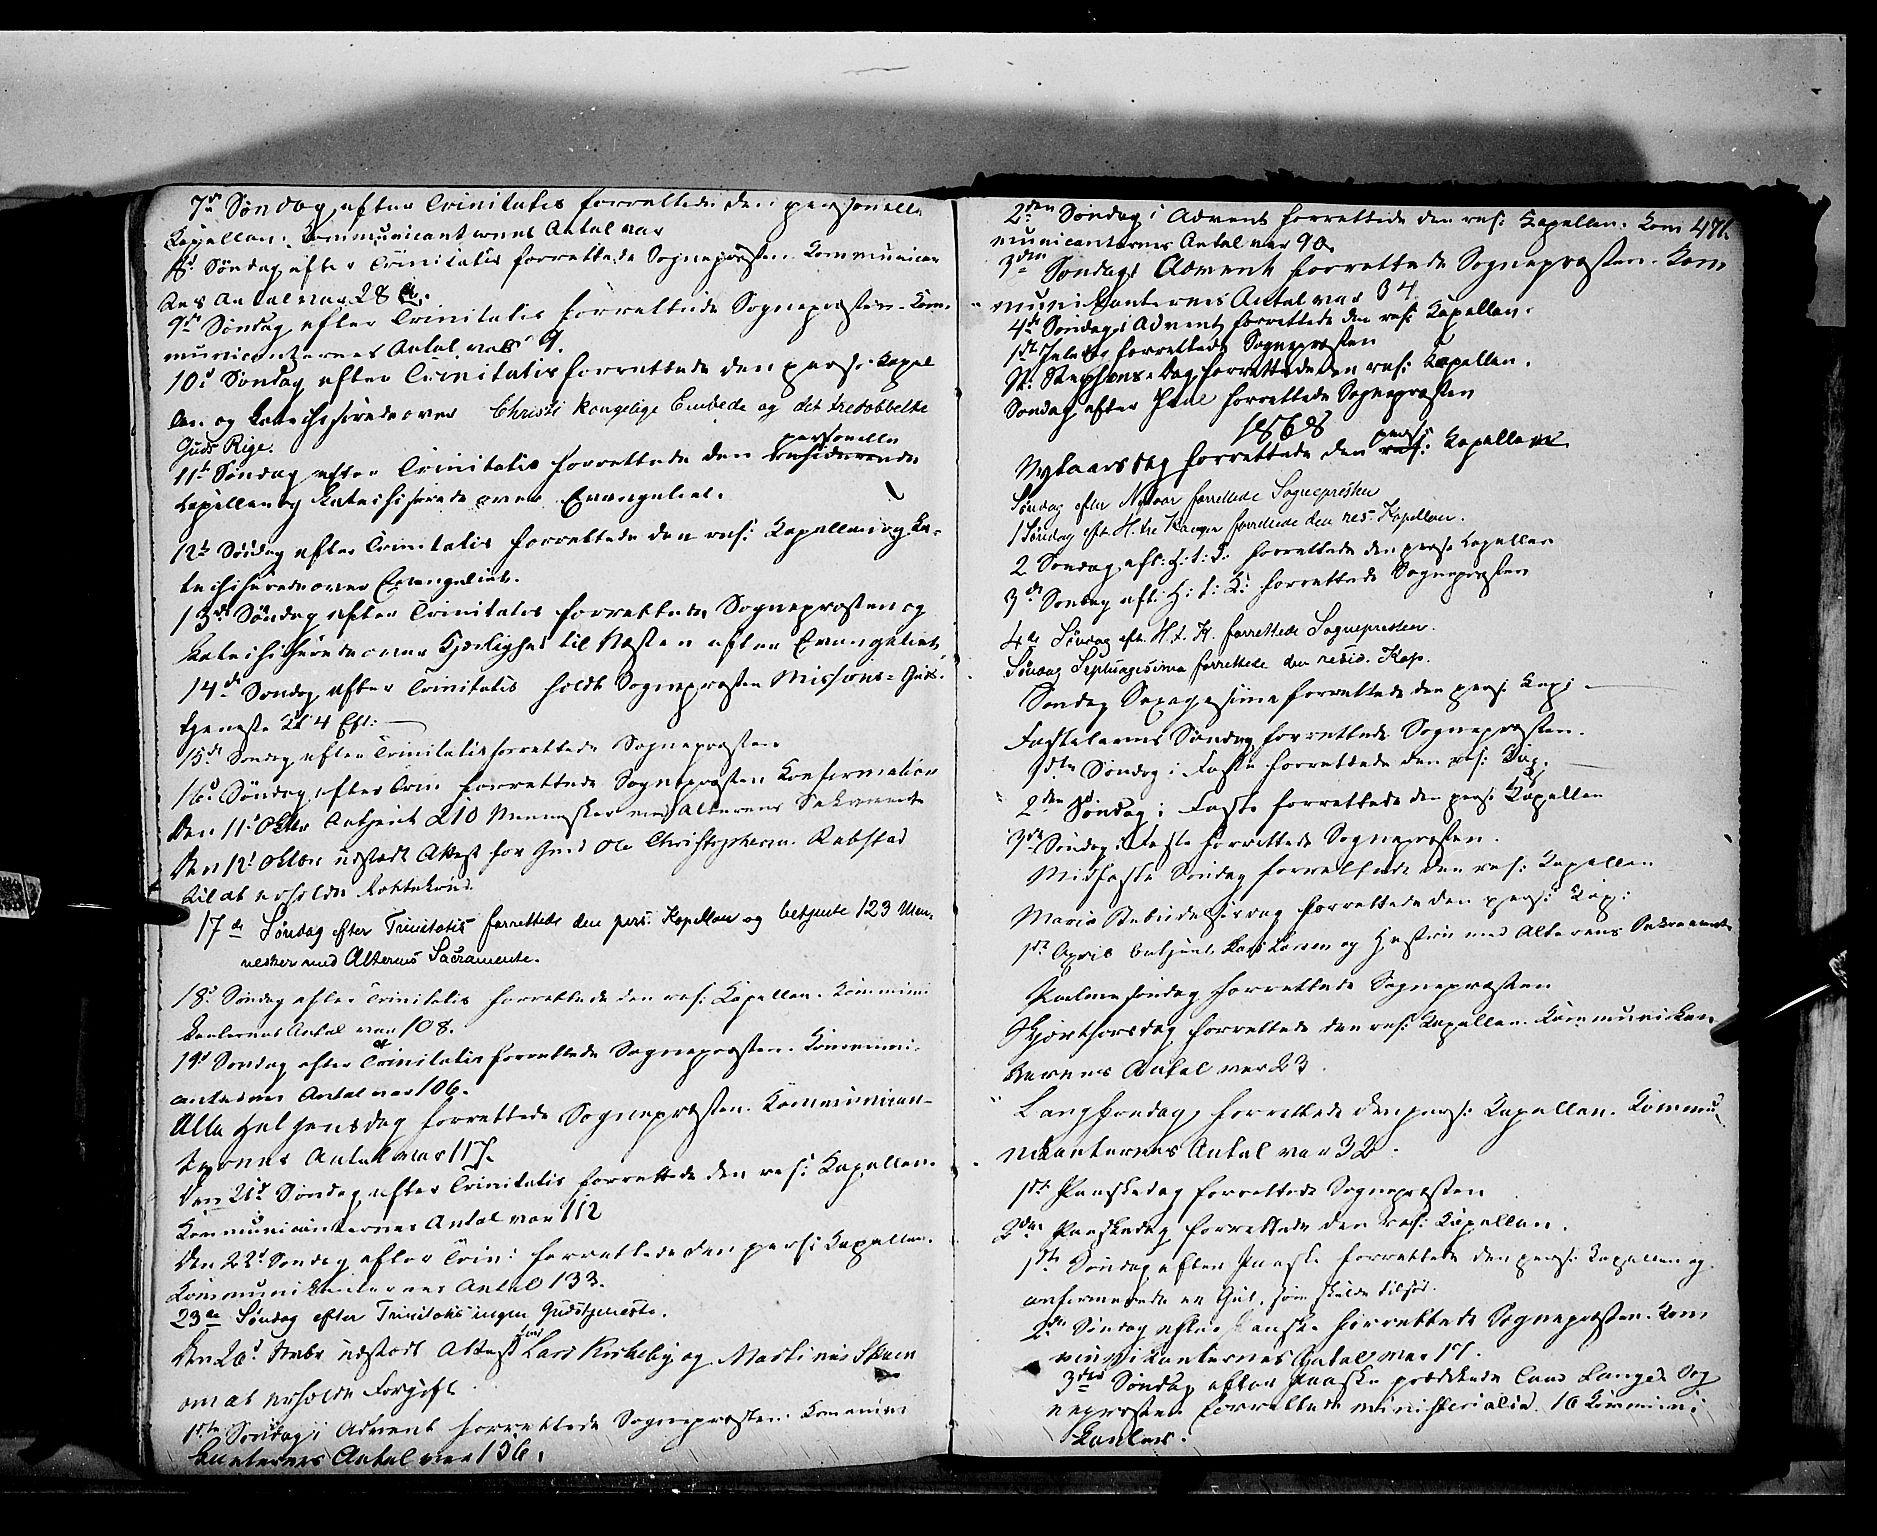 7de Søndag efter Trinitatis forrettede den personelle
Kapellan. Kommunicanternes Antal var
8d Søndag efter Trinitatis forrettede Sognepræsten. Kommunican
tes Antal var 28
9de Søndag efter Trinitatis forrettede Sognepræsten. Kom-
municanternes Antal var 9.
10d Søndag efter Trinitatis forrettede den pers. Kapel
lan og katechiserede over Christi kongelige Embede og det tredobbelte
Guds Rige.
11t Søndag efter Trinitatis forrettede den residerende personelle
Kapellan og katechiserede over Evangeliet.
12t Søndag efter Trinitatis forrettede den res: Kapellan og ka-
techiserede over Evangeliet.
13de Søndag efter Trinitatis forrettede Sognepræsten og
katechiserede over Kjærlighed til Næsten efter Evangeliet
14de Søndag efter Trinitatis holdt Sognepræsten Missions-Guds-
tjeneste Eft:
15de Søndag efter Trinitatis forrettede Sognepræsten
16d Søndag efter Trin forrettede Sognepræsten Konfirmation
Den 11t Oktbr betjent 210 Mennesker med Alterens Sakramente
Den 12t Oktbr udstedt Attest for Ole Christophersen Rebstad
til at erholde Rottekrud.
17de Søndag efter Trinitatis forrettede den pers. Kapellan og betjente 123 Men-
nesker med Alterens Sacramente.
18d Søndag efter Trinitatis forrettede den res: Kapellan. Kommuni
kanternes Antal var 108.
19d Søndag efter Trinitatis forrettede Sognepræsten. Kommuni-
anternes Antal var 106.
Alle Helgensdag forrettede Sognepræsten. Kommunican-
ternes Antal var 117.
Den 21d Søndag efter Trinitatis forrettede den res: Kapellan.
Kommunicanternes Antal var 112
Den 22d Søndag efter Trin: forrettede den pers: Kapellan.
Kommunikanternes Antal 133.
23de Søndag efter Trinitatis ingen Gudstjeneste.
Den 20d udstedt Attest for Lars Kirkeby og Martinus Skuen
om at erholde Forgift.
1ste Søndag i Advent forrettede Sognepræsten. Kommuni
kanternes Antal var 136.
471.
2den Søndag i Advent forrettede den res: Kapellan. Kom
municanternes Antal var 90.
3den Søndag i Advent forrettede Sognepræsten. Kom
munikanternes Antal var 34
4de Søndag i Advent forrettede den res: Kapellan.
1ste Juledag forrettede Sognepræsten
St. Stephans-Dag forrettede den res: Kapellan.
Søndag efter Juul forrettede Sognepræsten
1868
Nytaarsdag forrettede den res: pers: Kapellan
Søndag efter Nytaar forrettede Sognepresten
1 Søndag eft. H. tre Konger forrettede den res. Kapellan.
2 Søndag eft: H: t: K: forrettede den pers: Kapellan
3de Søndag eft: H: t: K: forrettede Sognepræsten
4de Søndag eft. H. t. K. forrettede Sognepresten.
Søndag Septuagesima forrettede den resid. Kap.
Søndag Sexagesima forrettede den pers: Kap:
Fastelavns Søndag forrettede Sognepræsten.
1ste Søndag i Faste forrettede den res: Kap.
2den Søndag i Faste forrettede den pers: Kapellan
3de Søndag i Faste forrettede Sognepræsten.
Midfaste Søndag forrettede den res: Kapellan
Mariæ Bebudelsesdag forrettede den pers: Kap:
1ste April betjent Lars Larsen og Hustru med Alterens Sakramente
Palmesøndag forrettede Sognepræsten
Skjærthorsdag forrettede den res: Kapellan. Kommunikan
ternes Antal var 23.
Langfredag forrettede den pers: Kapellan. Kommu
nikanternes Antal var 32.
1ste Paaskedag forrettede Sognepræsten
2den Paaskedag forrettede den res: Kapellan.
1ste Søndag efter Paaske forrettede den pers: Kapellan og
confirmerede en Gut, som skulde tilsøs.
2den Søndag efter Paaske forrettede Sognepræsten. Kom
munikanternes Antal var 17.
3die Søndag efter Paaske prædikede Cand Lange. Sog
nepræsten forrettede ministerialia. 16 Kommuni
kanter.